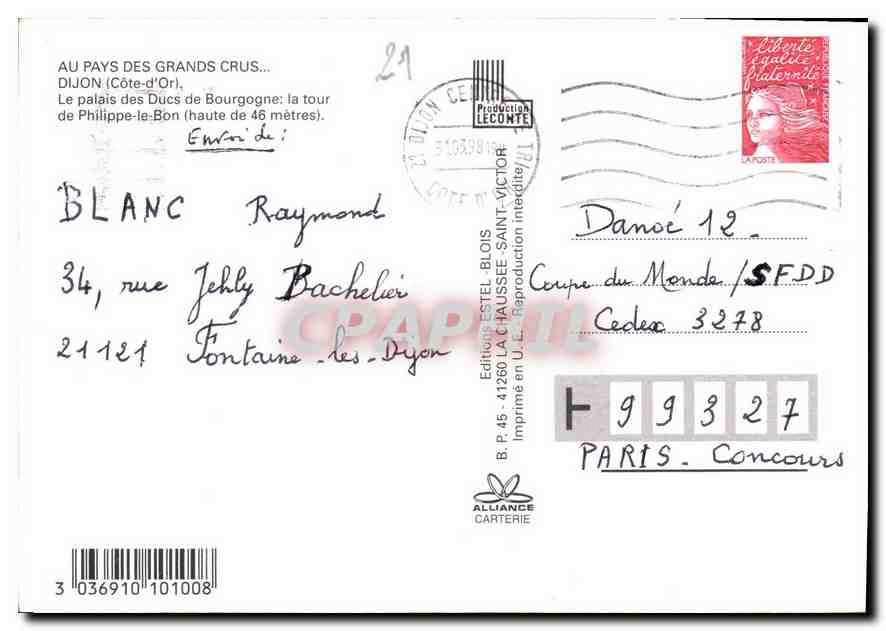 AU PAYS DES GRANDS CRUS...
DIJON (Côte-d'Or),
Le palais des Ducs de Bourgogne: la tour
de Philippe-le-Bon (haute de 46 mètres).
Envoi de :
BLANC Raymond
34, rue Jehly Bachelier
21121 Fontaine-les-Dijon
21
Production
LECONTE
21 DIJON CENTRE TRI
31.03.98
COTE D'OR
liberté
égalité
fraternité
RÉPUBLIQUE FRANÇAISE
LA POSTE
Danoé 12.
Coupe du Monde / SFDD
Cedex 3278
99327
PARIS - Concours
Editions ESTEL - BLOIS
B. P. 45 - 41260 LA CHAUSSEE-SAINT-VICTOR
Imprimé en U. E. - Reproduction interdite
CPAPHIL
ALLIANCE
CARTERIE
3 036910 101008